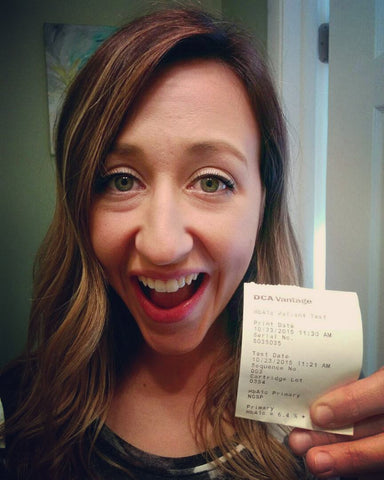 DCA Vantage
HbA1c Patient Test
Print Date
10/23/2015 11:30 AM
Serial No.
S035035
Test Date
10/23/2015 11:21 AM
Sequence No
003
Cartridge Lot
0354
HbA1c Primary
NGSP
Primary
HbA1c = 6.4 % *